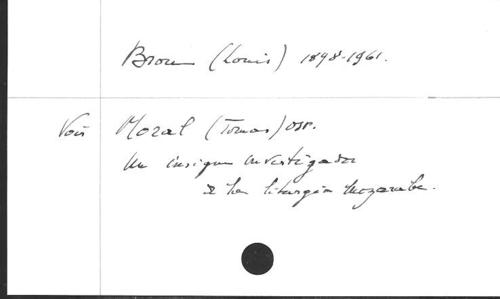 Brou (Louis) 1898-1961.
Voir Moral (Tomas) OSB.
Un insigne investigador
de la liturgia mozarabe.